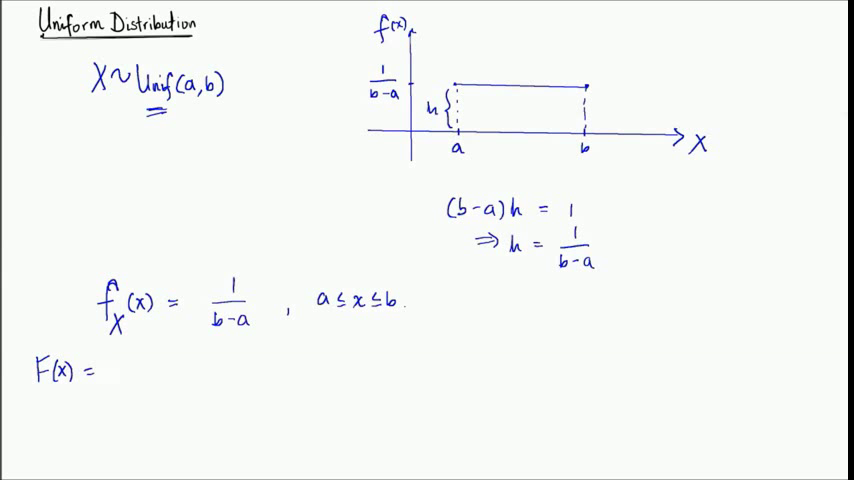 Uniform Distribution
X ~ Unif(a,b)
f(x)
1/(b-a)
h {
a b X
(b-a)h = 1
⇒ h = 1/(b-a)
f_X(x) = 1/(b-a) , a ≤ x ≤ b.
F(x) =